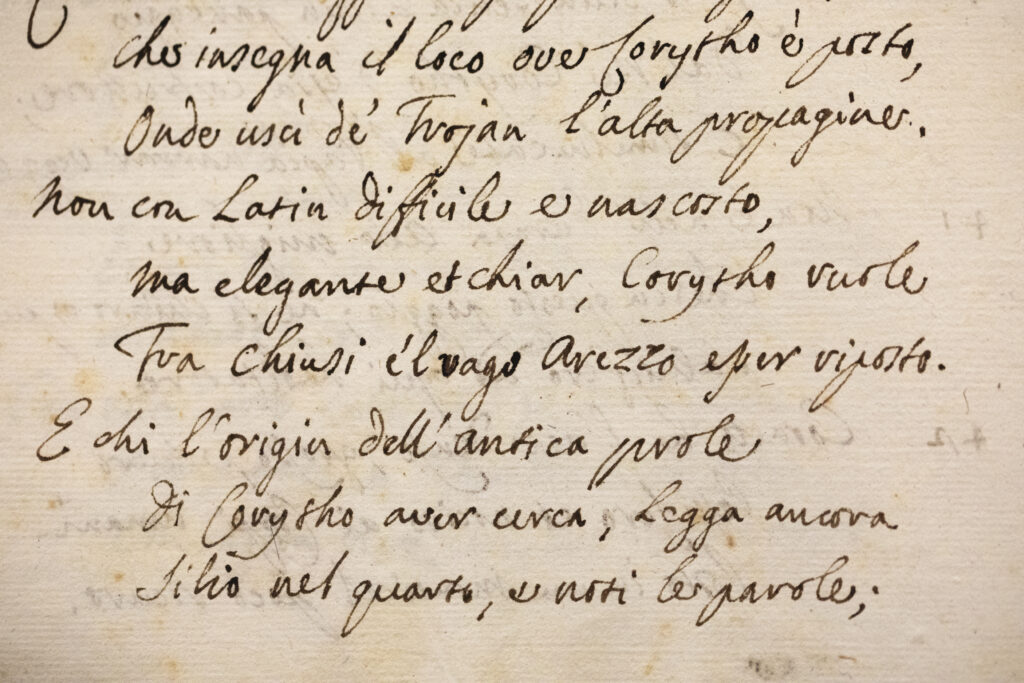 che insegna il loco ove Corytho è posto,
Onde uscì de' Trojan l'alta propagine.
Non con Latin difficile e nascosto,
ma elegante et chiar, Corytho vuole
Tra Chiusi e 'l vago Arezzo esser riposto.
E chi l'origin dell'antica prole
di Corytho aver cerca, Legga ancora
Silio nel quarto, e noti le parole;